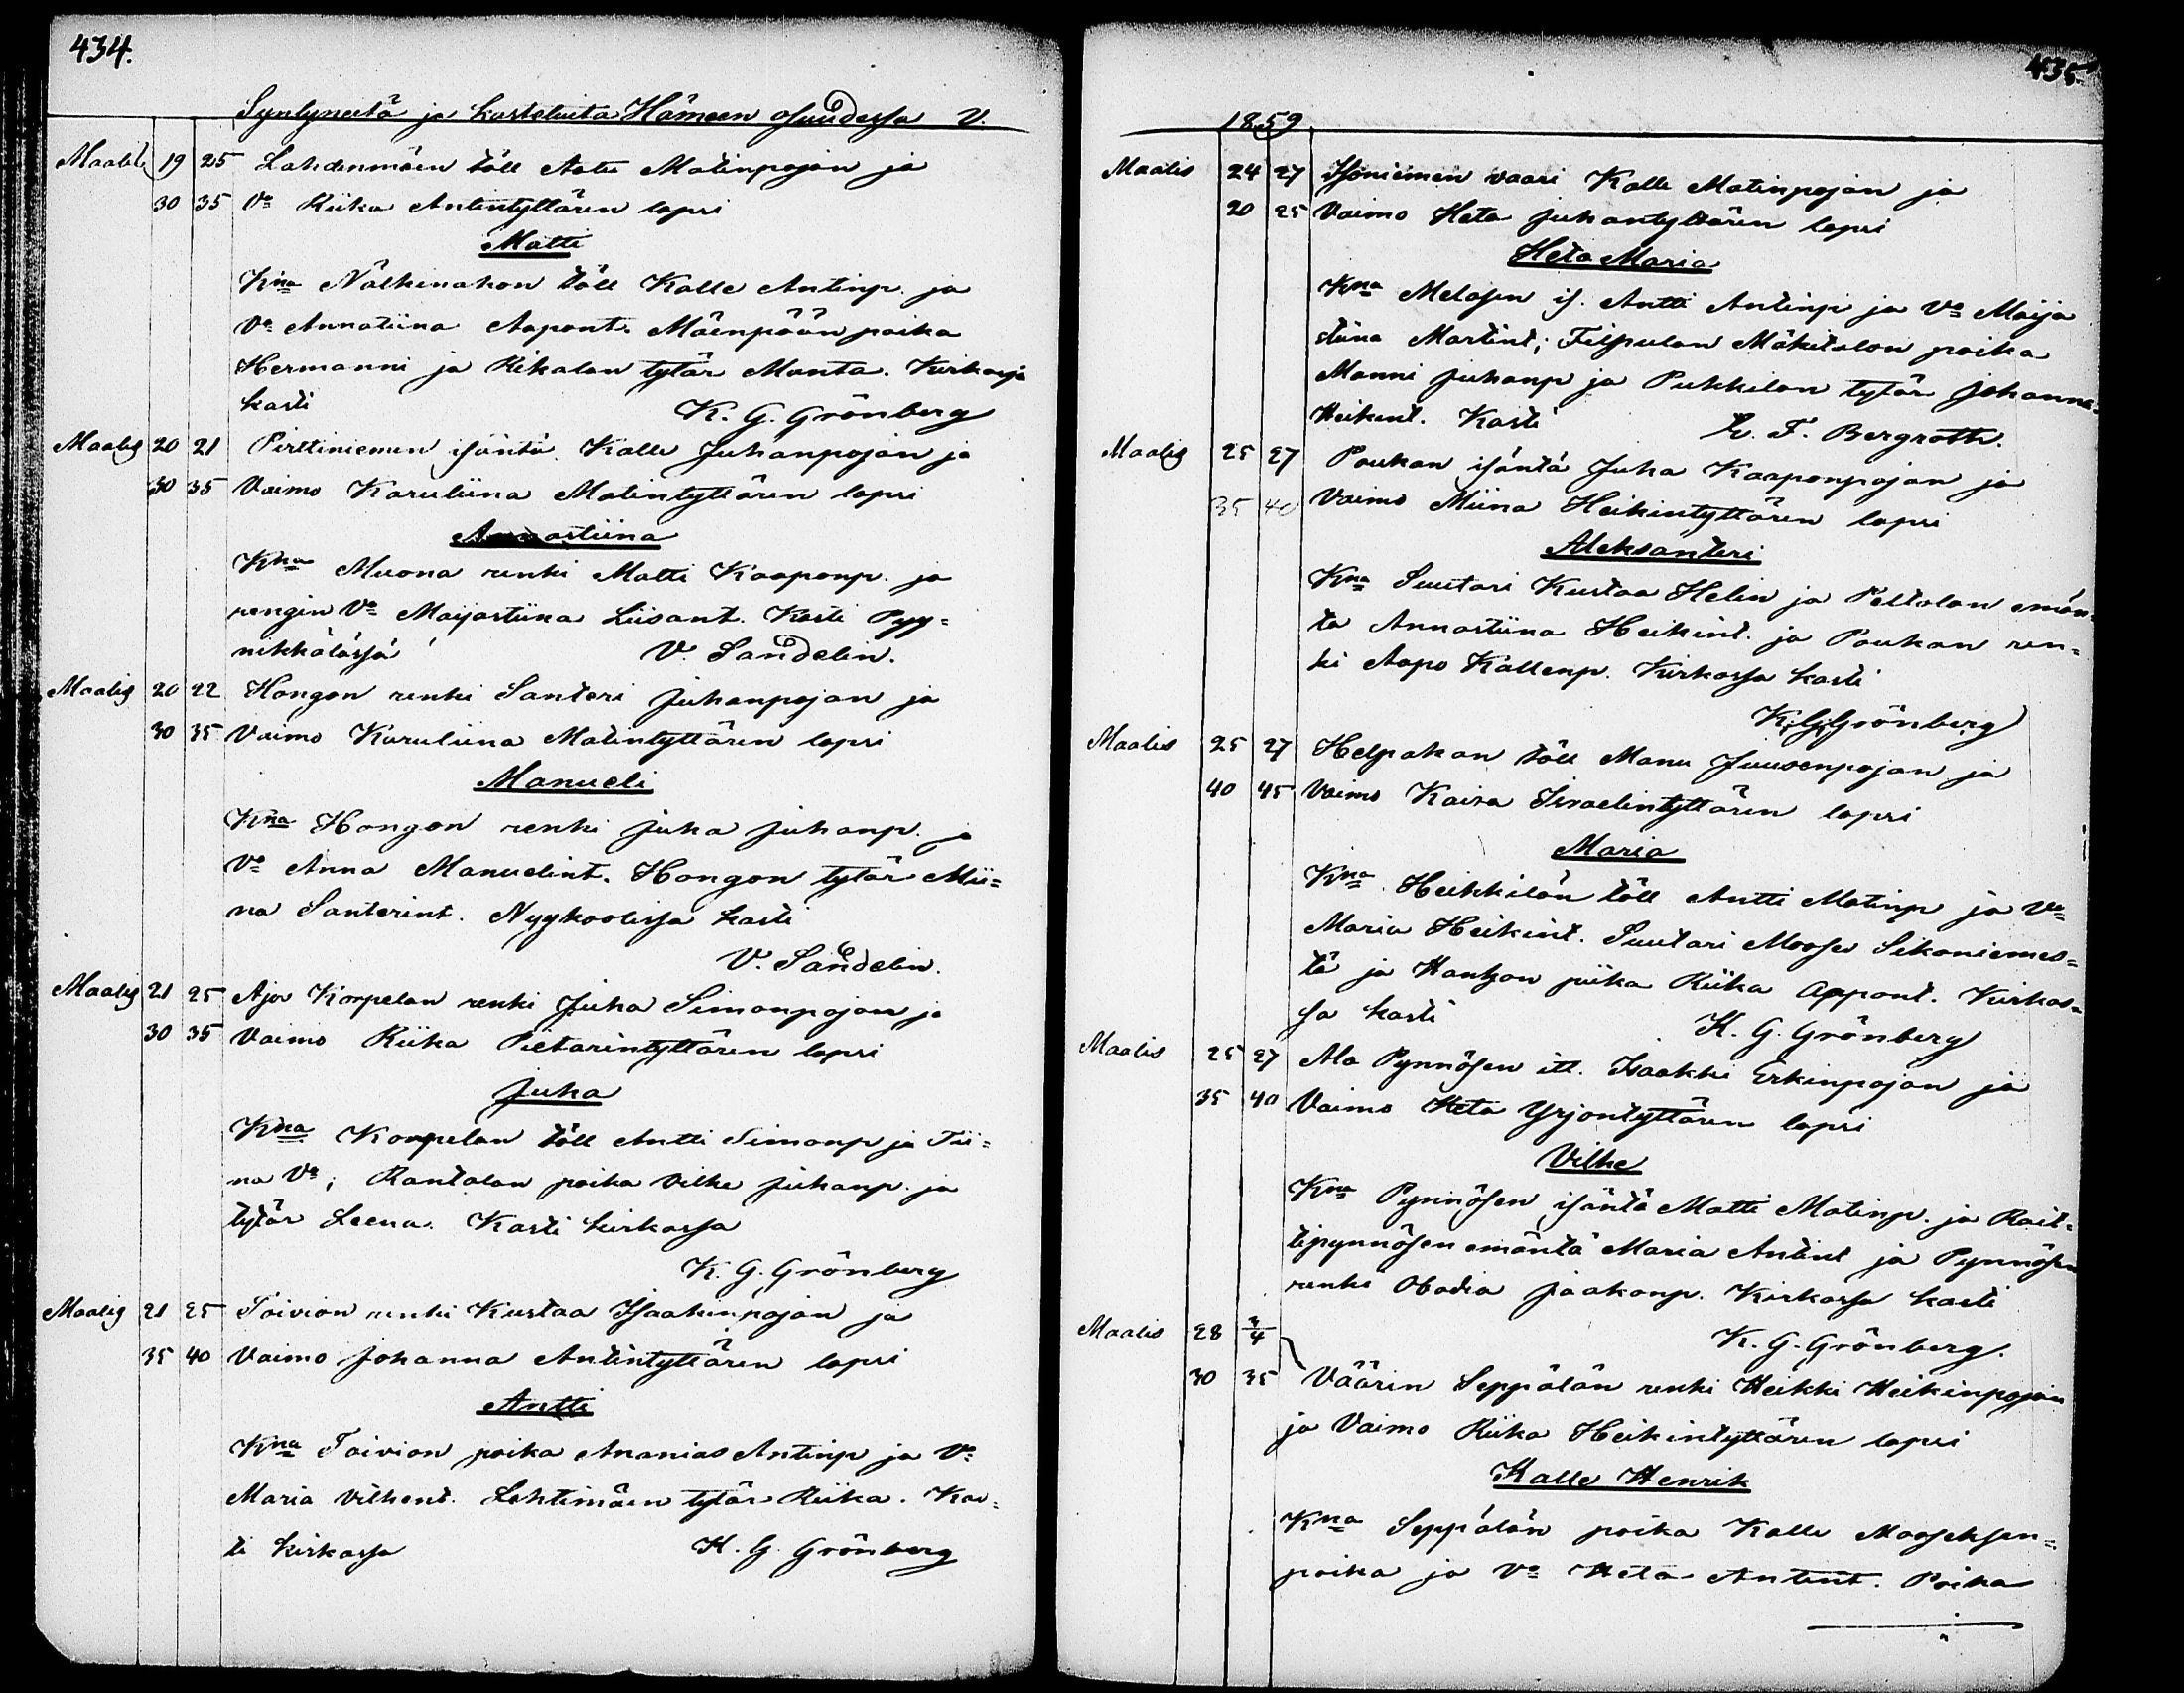 434.
Syntyneitä ja kasteluita Hämeen osuudessa V.
Maalis 19 25 Lahdenmäen töll Aatu Matinpojan ja
30 35 Vo Riika Antintyttären lapsi
Matti
Kna Nälkinahon töll Kalle Antinp. ja
Vo Annatiina Aapont. Mäenpään poika
Hermanni ja Rikalan tytär Manta. Kirkossa
kasti K. G. Grönberg
Maalis 20 21 Pirttiniemen isäntä Kalle Juhanpojan ja
30 35 Vaimo Karuliina Matintyttären lapsi
Annastiina
Kna Muona renki Matti Kaaponp. ja
rengin Vo Maijastiina Liisant. Kasti Pyy=
nikkälässä V. Sandelin.
Maalis 20 22 Hongon renki Santeri Juhanpojan ja
30 35 Vaimo Karuliina Matintyttären lapsi
Manueli
Kna Hongon renki Juha Juhanp. ja
Vo Anna Manuelint. Hongon tytär Mii=
na Santerint. Nygkoolissa kasti
V. Sandelin.
Maalis 21 25 Ajo Korpelan renki Juha Simonpojan ja
30 35 Vaimo Riika Pietarintyttären lapsi
Juha
Kna Korpelan töll Antti Simonp ja Tii=
na Vo; Rantalan poika Vilke Juhanp. ja
tytär Leena. Kasti kirkossa
K. G. Grönberg
Maalis 21 25 Toivion renki Kustaa Isaakinpojan ja
35 40 Vaimo Johanna Antintyttären lapsi
Antti
Kna Toivion poika Ananias Antinp ja Vo
Maria Vilhent. Lehtimäen tytär Riika. Kas=
ti kirkossa K. G. Grönberg
435.
1859
Maalis 24 27 Isoniemen vaari Kalle Matinpojan ja
20 25 Vaimo Heta Juhantyttären lapsi
Heta Maria
Kna Melasen is. Antti Antinp ja Vo Maija
stiina Martint; Filpulan Mäkitalon poika
Manni Juhanp ja Pukkilan tytär Johanna
Heikint. Kasti F. Bergroth.
Maalis 25 27 Poukan isäntä Juha Kaaponpojan ja
35 40 Vaimo Miina Heikintyttären lapsi
Aleksanteri
Kna Suutari Kustaa Helin ja Peltolan emän=
tä Annastiina Heikint. ja Poukan ren=
ki Aapo Kallenp. Kirkossa kasti
K. G. Grönberg
Maalis 25 27 Helpakan töll Manu Juusenpojan ja
40 45 Vaimo Kaisa Israelintyttären lapsi
Maria
Kna Heikkilän töll Antti Matinp ja Vo
Maria Heikint. Suutari Mooses Sikoniemes=
tä ja piika Riika Appont. Kirkos=
sa kasti K. G. Grönberg
Maalis 25 27 Ala Pynnösen itt. Isaakki Erkinpojan ja
35 40 Vaimo Heta Yrjontyttären lapsi
Vilke
Kna Pynnösen isäntä Matti Matinp. ja Rait=
tipynnösen emäntä Maria Antint ja Pynnösen
renki Obadia Jaakonp. Kirkossa kasti
K. G. Grönberg.
Maalis 28 3/4
30 35 Väärin Seppälän renki Heikki Heikinpojan
ja Vaimo Riika Heikintyttären lapsi
Kalle Henrik
Kna Seppälän poika Kalle Mooseksen=
poika ja Vo Heta Antint. Poika